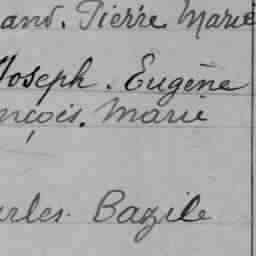 and. Pierre Marie
Joseph. Eugène
nçois. Marie
arles. Bazile